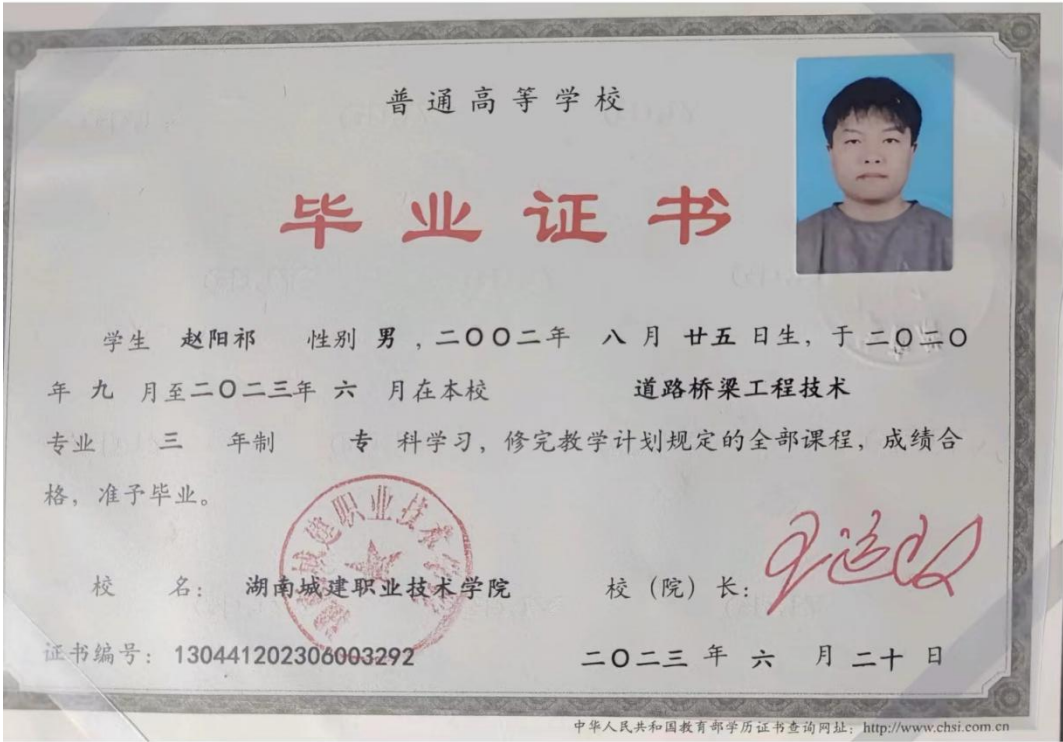 普通高等学校
毕业证书
学生 赵阳祁 性别 男 ，二〇〇二年 八 月 廿五 日生，于 二〇二〇
年 九 月至二〇二三年 六 月在本校 道路桥梁工程技术
专业 三 年制 专 科学习，修完教学计划规定的全部课程，成绩合
格，准予毕业。
城建职业技术
校 名： 湖南城建职业技术学院 校（院）长：
证书编号： 130441202306003292 二〇二三 年 六 月 二十 日
中华人民共和国教育部学历证书查询网址：http://www.chsi.com.cn